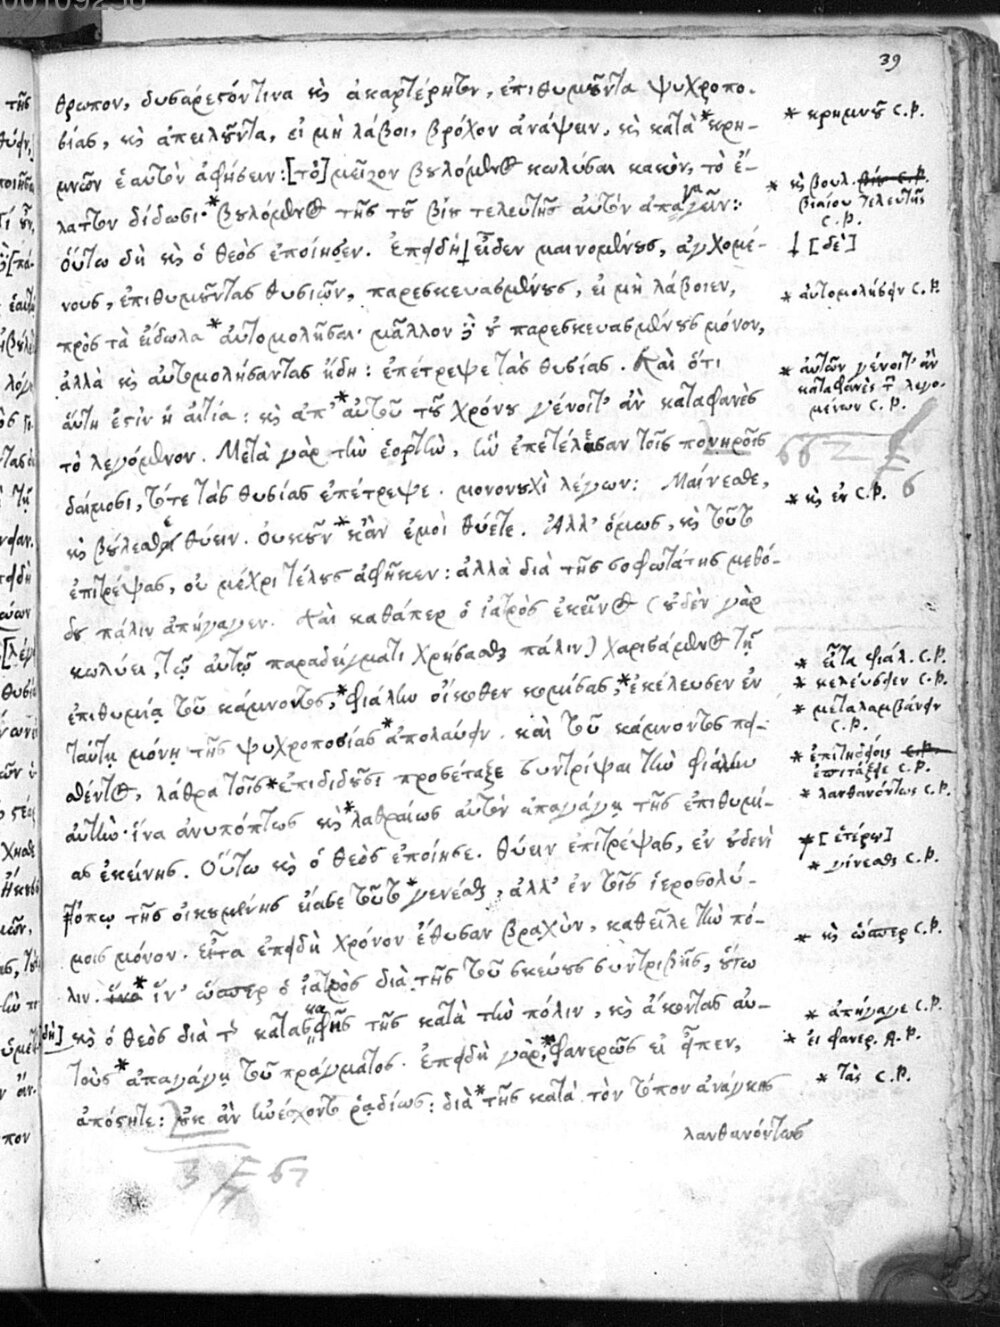 39
θρωπον, δυσαρεστόντινα καὶ ἀκαρτέρητον, ἐπιθυμοῦντα ψυχροπο-
σίας, καὶ ἀπειλοῦντα, εἰ μὴ λάβοι, βρόχον ἀνάψειν, καὶ κατὰ * κρη-
* κρημνοῦ C.P.
μνῶν ἑαυτὸν ἀφήσειν: [τὸ] μεῖζον βουλόμενος κωλῦσαι κακὸν, τὸ ἔ-
λαττον δίδωσι· * βουλόμενος τῆς τοῦ βίου τελευτῆς αὐτὸν ἀπαγαγεῖν:
* καὶ βουλ. βίου C.P.
βιαίου τελευτῆς
C.P.
οὕτω δὴ καὶ ὁ θεὸς ἐποίησεν. Ἐπειδὴ ⸸ εἶδεν μαινομένους, ἀγχομέ-
⸸ [δὲ]
νους, ἐπιθυμοῦντας θυσιῶν, παρεσκευασμένους, εἰ μὴ λάβοιεν,
* αὐτομολήσειν C.P.
πρὸς τὰ εἴδωλα * αὐτομολῆσαι· μᾶλλον δὲ οὐ παρεσκευασμένους μόνον,
ἀλλὰ καὶ αὐτομολήσαντας ἤδη: ἐπέτρεψε τὰς θυσίας. Καὶ ὅτι
αὕτη ἐστὶν ἡ αἰτία: καὶ ἀπ' * αὐτοῦ τοῦ χρόνου γένοιτ' ἂν καταφανὲς
* αὐτῶν γένοιτ' ἂν
καταφανὲς τῶν λεγο-
μένων C.P.
τὸ λεγόμενον. Μετὰ γὰρ τὴν ἑορτὴν, ἣν ἐπετέλεσαν τοῖς πονηροῖς
662
δαίμοσι, τότε τὰς θυσίας ἐπέτρεψε. μονονουχὶ λέγων: Μαίνεσθε,
* καὶ ἐν C.P.
καὶ βούλεσθε θύειν. Οὐκοῦν * κἂν ἐμοὶ θύετε. Ἀλλ' ὅμως, καὶ τοῦτο
ἐπιτρέψας, οὐ μέχρι τέλους ἀφῆκεν: ἀλλὰ διὰ τῆς σοφωτάτης μεθό-
δου πάλιν ἀπήγαγεν. Καὶ καθάπερ ὁ ἰατρὸς ἐκεῖνος (οὐδὲν γὰρ
κωλύει, τῷ αὐτῷ παραδείγματι χρήσασθαι πάλιν) χαρισάμενος τῇ
* εἶτα φιάλ. C.P.
ἐπιθυμίᾳ τοῦ κάμνοντος, * φιάλην οἴκοθεν κομίσας, * ἐκέλευσεν ἐν
* κελεύσειεν C.P.
ταύτῃ μόνῃ τῆς ψυχροποσίας * ἀπολαύειν. καὶ τοῦ κάμνοντος πει-
* μεταλαμβάνειν
C.P.
σθέντος, λάθρα τοῖς * ἐπιδιδοῦσι προσέταξε συντρίψαι τὴν φιάλην
* ἐπιτηδείοις C.P.
ἐπιτάξειε C.P.
αὐτὴν· ἵνα ἀνυπόπτως καὶ * λαθραίως αὐτὸν ἀπαγάγῃ τῆς ἐπιθυμί-
* λανθανόντως C.P.
ας ἐκείνης. Οὕτω καὶ ὁ θεὸς ἐποίησε. θύειν ἐπιτρέψας, ἐν οὐδενὶ
⸸ [ἑτέρῳ]
⸸ τόπῳ τῆς οἰκουμένης εἴασε τοῦτο * γενέσθαι, ἀλλ' ἐν τοῖς ἱεροσολύ-
* γίνεσθαι C.P.
μοις μόνον. Εἶτα ἐπειδὴ χρόνον ἔθυσαν βραχὺν, καθεῖλε τὴν πό-
* καὶ ὥσπερ C.P.
λιν. ἵνα * ἵν' ὥσπερ ὁ ἰατρὸς διὰ τῆς τοῦ σκεύους συντριβῆς, οὕτω
καὶ ὁ θεὸς διὰ τῆς κατασκαφῆς τῆς κατὰ τὴν πόλιν, καὶ ἄκοντας αὐ-
* ἀπήγαγε C.P.
τοὺς * ἀπαγάγῃ τοῦ πράγματος. Ἐπειδὴ γὰρ, * φανερῶς εἰ εἶπεν,
* εἰ φανερ. A.P.
ἀπόσητε: οὐκ ἂν ἠνέσχοντο ῥᾳδίως: διὰ * τῆς κατὰ τὸν τόπον ἀνάγκης
* τὰς C.P.
λανθανόντως